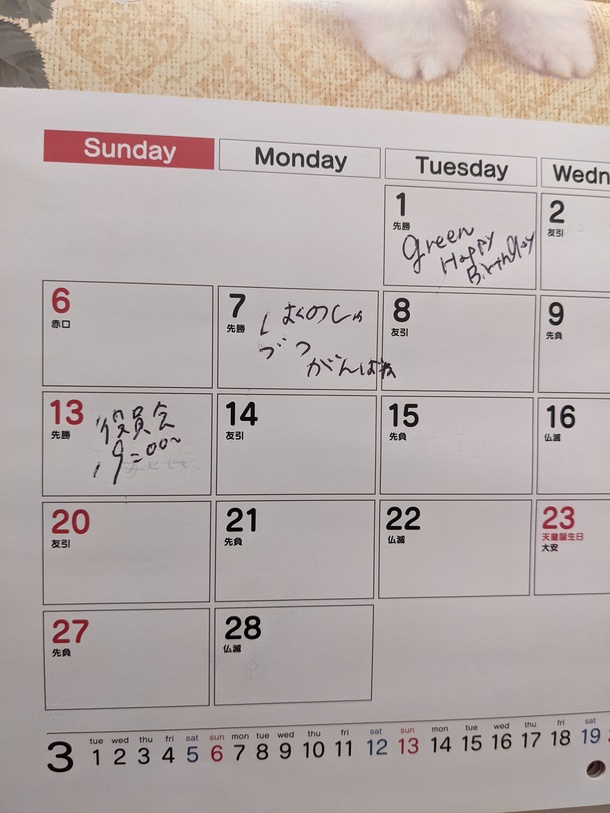 Sunday Monday Tuesday Wedn
1 先勝
green
Happy
Birthday
2 友引
6 赤口
7 先勝
しはくのしゅ
づつ
がんばれ
8 友引
9 先負
13 先勝
役員会
19:00~
14 友引
15 先負
16 仏滅
20 友引
21 先負
22 仏滅
23 天皇誕生日 大安
27 先負
28 仏滅
3
tue wed thu fri sat sun mon tue wed thu fri sat sun mon tue wed thu fri sat
1 2 3 4 5 6 7 8 9 10 11 12 13 14 15 16 17 18 19